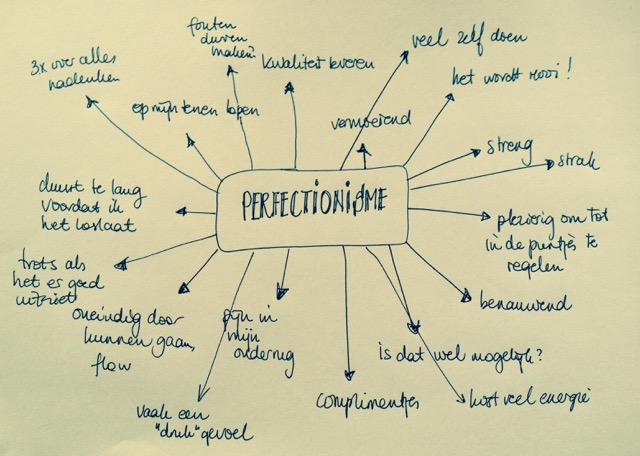 3x over alles
nadenken
fouten
durven
maken?
kwaliteit leveren
veel zelf doen
het wordt mooi!
op mijn tenen lopen
vermoeiend
streng
strak
PERFECTIONISME
duurt te lang
voordat ik
het loslaat
plezierig om tot
in de puntjes te
regelen
trots als
het er goed
uitziet
oneindig door
kunnen gaan,
flow
pijn in
mijn
onderrug
benauwend
is dat wel mogelijk?
vaak een
"druk" gevoel
complimentjes
kost veel energie